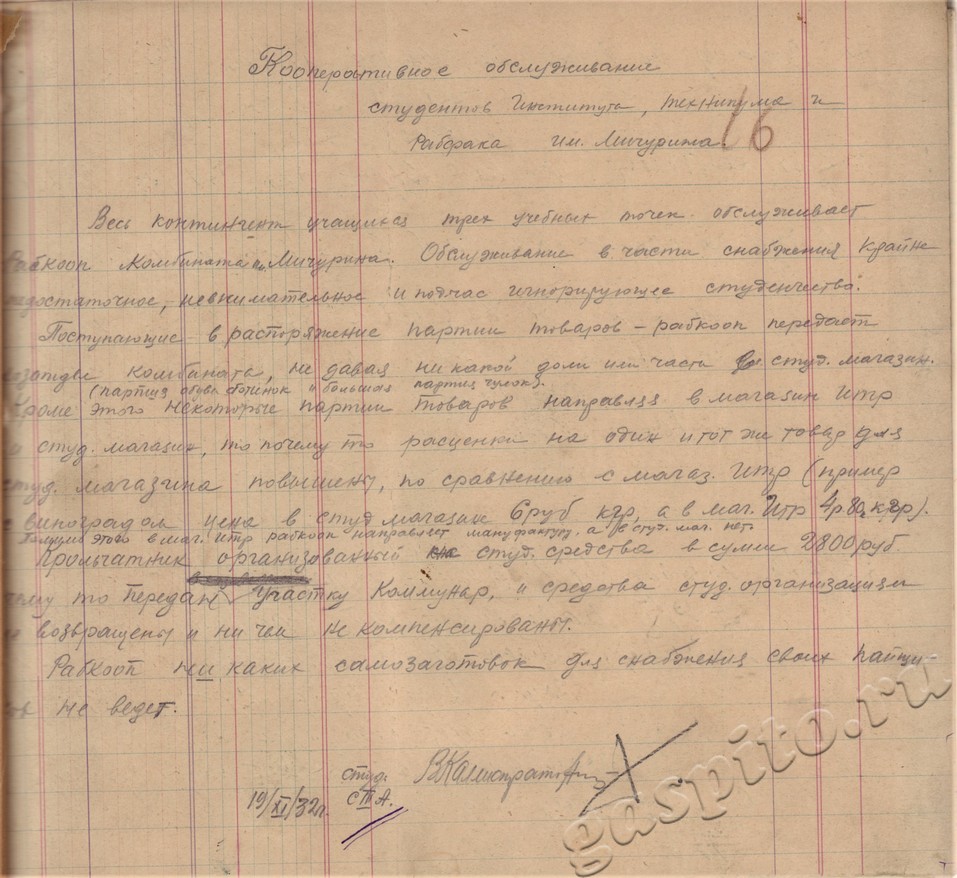 Кооперативное обслуживание
студентов Института, техникума и
Рабфака им. Мичурина.
16
Весь контингент учащихся трех учебных точек обслуживает
Рабкооп Комбината им. Мичурина. Обслуживание в части снабжения крайне
недостаточное, невнимательное и подчас игнорирующее студенчество.
Поступающие в распоряжение партии товаров – рабкооп передает
комбината, не давая ни какой доли или части в студ. магазин.
(партия обуви ботинок и большая партия чулок).
Кроме этого некоторые партии товаров направляя в магазин Итр
и студ. магазин, то почему то расценки на один и тот же товар для
студ. магазина повышены, по сравнению с магаз. Итр (пример
с виноградом цена в студ магазин 6 руб кгр, а в маг. Итр 4 р. 80 к кгр).
этого в маг. Итр рабкооп направляет мануфактуру, а в студ. маг. нет.
Крольчатник организованный на студ. средства в сумми 2800 руб.
чему то передан участку Коммунар, и средства студ. организации
возвращены и ни чем не компенсированы.
Рабкооп ни каких самозаготовок для снабжения своих пайщи-
ков не ведет.
студ.
19/XI/32 г.
gaspito.ru